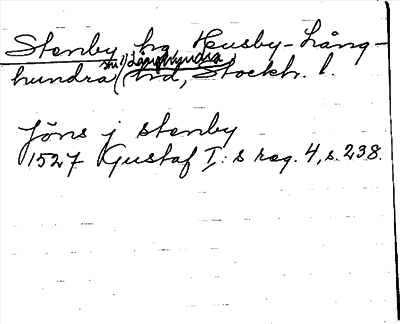 Stenby hg Husby-Lång-
hundra sn i) Långhundra hd, Stockh. l.
Jöns j stenby
1527 Gustaf I:s reg. 4, s. 238.